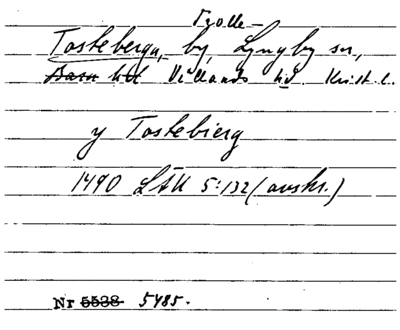 Trolle-
Tosteberga, by, Ljungby sn,
Bara hd Villands hd. Krist. l.
y Tostebierg
1490 LÄU 5:132 (avskr.)
Nr 5538 5485.